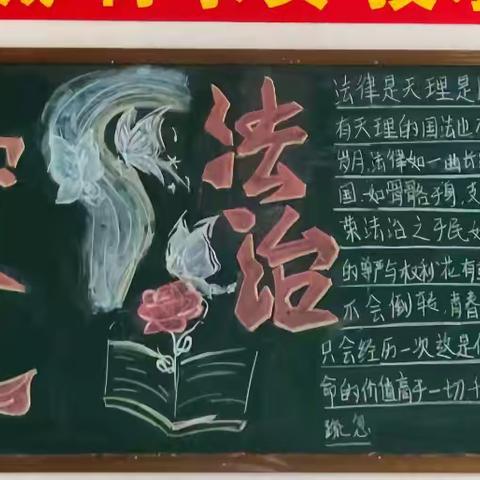 法治
法律是天理是
有天理的国法也
岁月,法律如一曲
国.如骨骼于身,支
荣法治之于民如
的尊严与权利花有
不会倒转,青春
只会经历一次这是
命的价值高于一切
疏忽